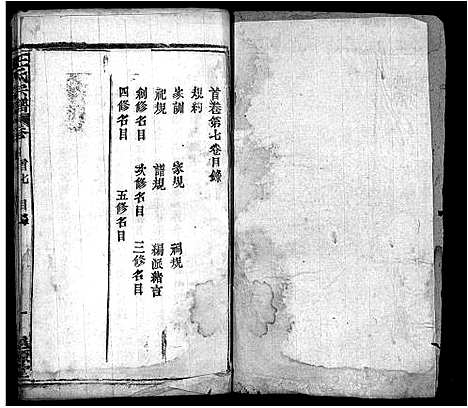 首卷第七卷目錄
規約
家訓 家規 祠規
祀規 譜規 楊派緒言
創修名目 次修名目 三修名目
四修名目 五修名目
氏宗譜
首七 目錄